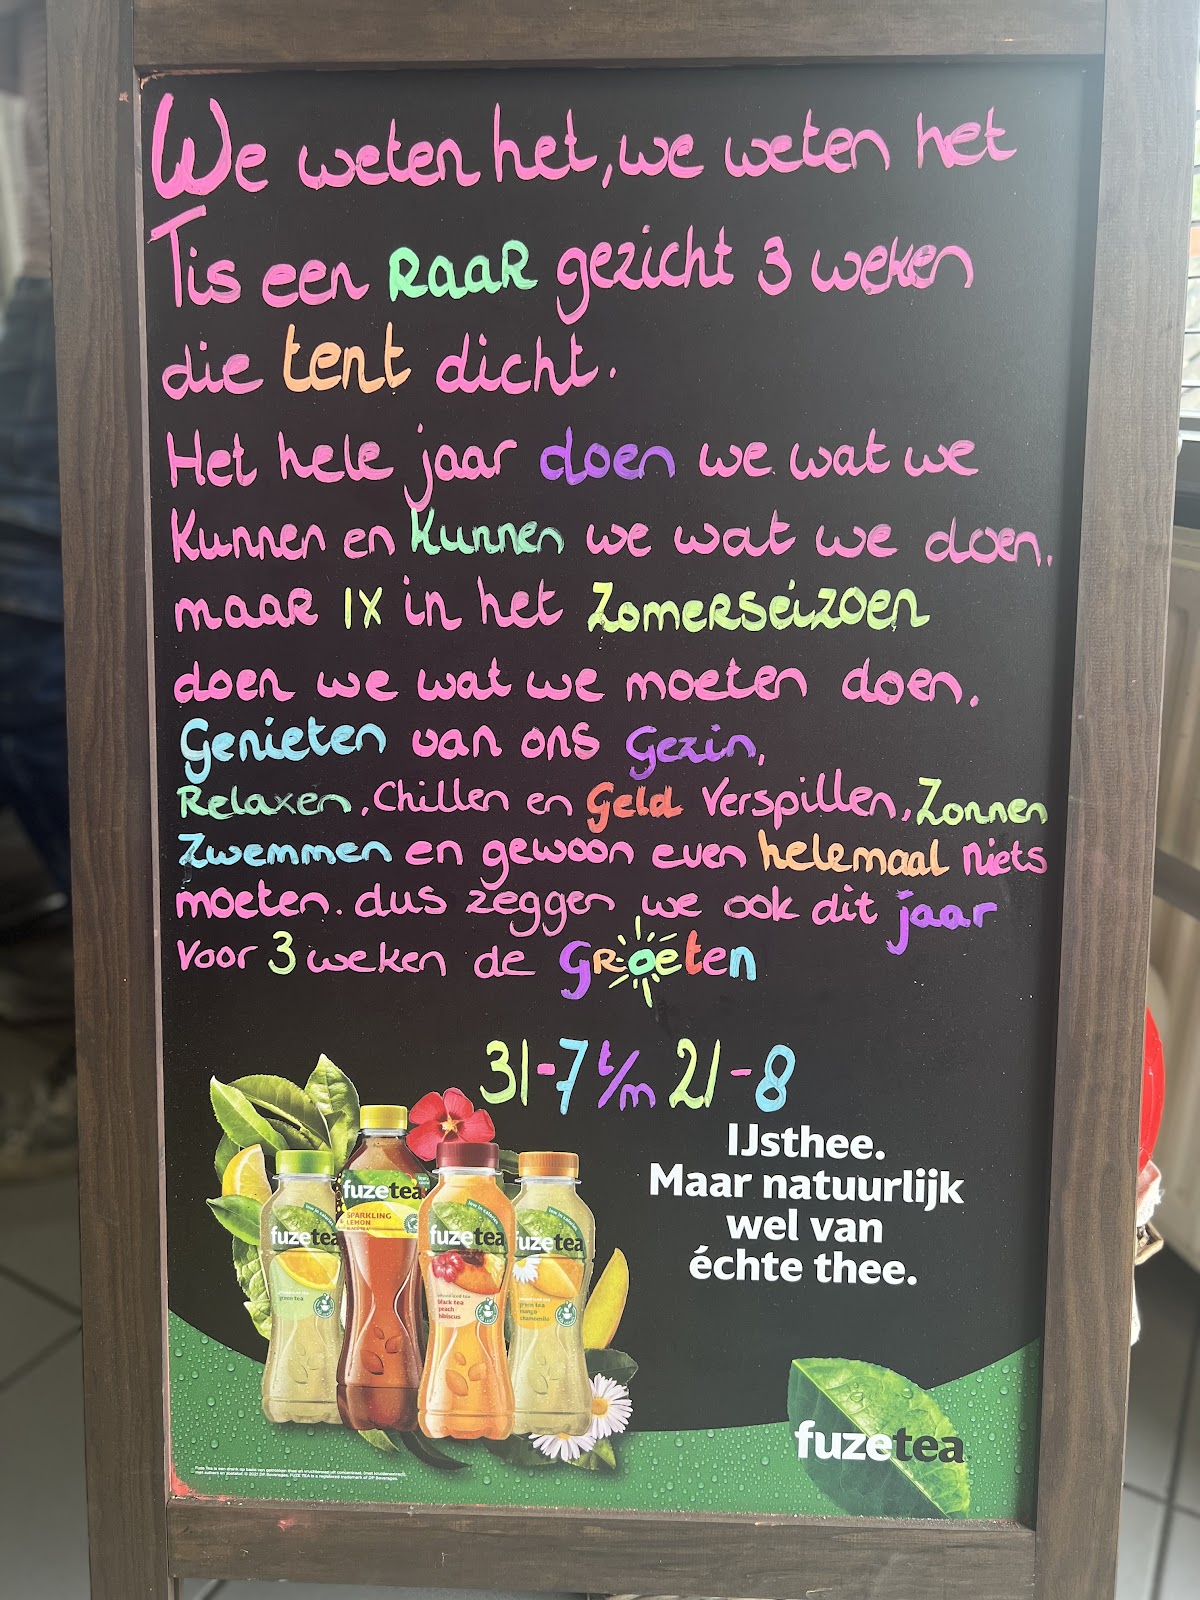 We weten het, we weten het
Tis een RAAR gezicht 3 weken
die tent dicht.
Het hele jaar doen we wat we
Kunnen en Kunnen we wat we doen.
maar 1x in het Zomerseizoen
doen we wat we moeten doen.
Genieten van ons Gezin,
Relaxen, Chillen en Geld Verspillen, Zonnen
Zwemmen en gewoon even helemaal niets
moeten. dus zeggen we ook dit jaar
Voor 3 weken de Groeten
31-7 t/m 21-8
IJsthee.
Maar natuurlijk
wel van
échte thee.
fuzetea
SPARKLING
LEMON
BLACK TEA
fuzetea
green tea
fuzetea
black tea
peach
hibiscus
fuzetea
green tea
mango
chamomile
fuzetea